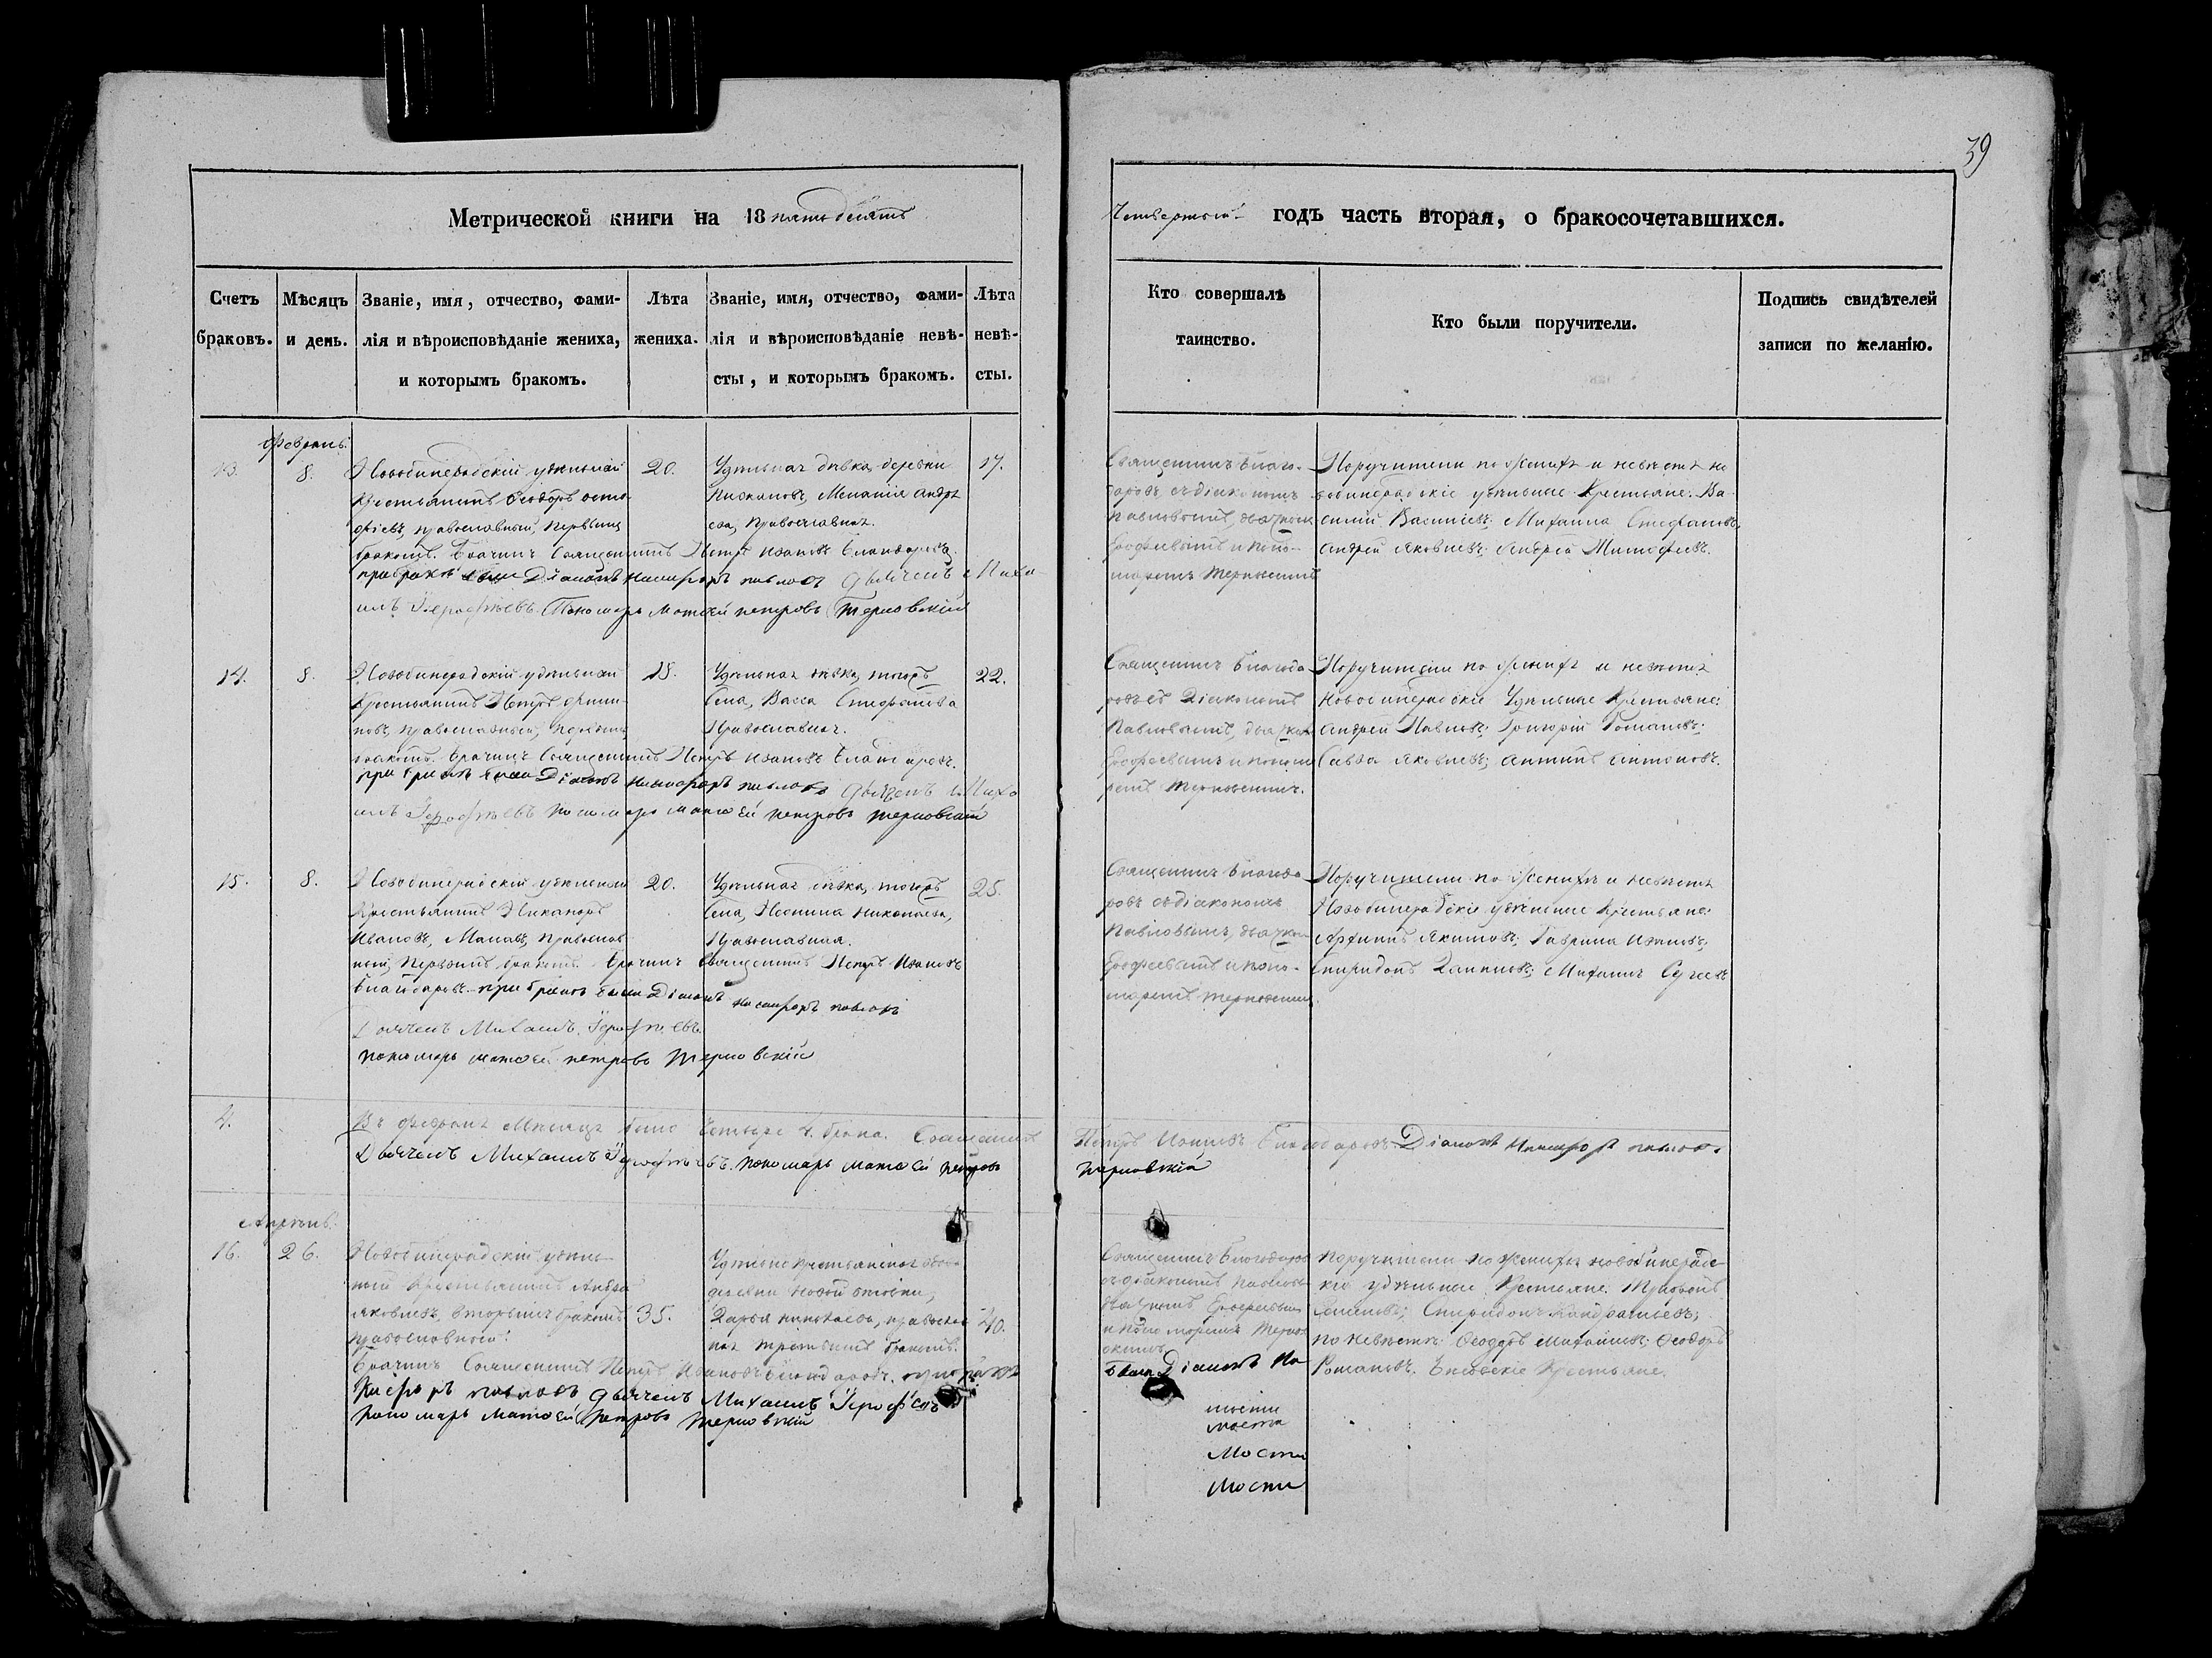 39
Метрической книги на 18 пятьдесятъ
Четвертый годъ часть вторая, о бракосочетавшихся.
Счетъ браковъ.
Мѣсяцъ и день.
Званіе, имя, отчество, фами-
лія и вѣроисповѣданіе жениха,
и которымъ бракомъ.
Лѣта
жениха.
Званіе, имя, отчество, фами-
лія и вѣроисповѣданіе невѣ-
сты, и которымъ бракомъ.
Лѣта
невѣ-
сты.
Кто совершалъ
таинство.
Кто были поручители.
Подпись свидѣтелей
записи по желанію.
Февраль.
13. 8.
удѣльный
Крестьянинъ Ѳеодоръ
православный, первымъ
бракомъ. Брачилъ Священникъ Петръ Ивановъ Благодаровъ.
при бракѣ были Діаконъ Никифоръ павловъ дьячекъ Миха-
илъ Іерофѣевъ Пономарь матѳей петровъ терновскій
20.
Удѣльная дѣвка, деревни
Меланія Андре
ева, Православная.
17.
Священникъ Благо-
даровъ съ діакономъ
Павловымъ, дьячком
Ерофеевымъ и поно-
маремъ Терновскимъ
Поручители по Женихѣ и невѣстѣ но
удѣльные Крестьяне: Ва-
силій Васильевъ; Михаила Стефановъ;
Андрей Яковлевъ; Андрей Тимофеевъ.
14. 8.
удѣльный
Крестьянинъ Петръ Филип
повъ, православный, первымъ
бракомъ. Брачилъ Священникъ Петръ Ивановъ Благодаровъ.
при бракѣ были Діаконъ Никифоръ павловъ дьячекъ Миха
илъ Іерофѣевъ пономарь матѳей петровъ терновскій
18.
Удѣльная дѣвка, тогожъ
Села, Васса Стефанова
Православная.
22.
Священникъ Благода
ровъ съ Діакономъ
Павловымъ, дьячком
Ерофеевымъ и понома
ремъ Терновскимъ.
Поручители по Женихѣ и невѣстѣ
Удѣльные Крестьяне:
Андрей Павловъ; Григорій Романовъ;
Савва Яковлевъ; Антипъ Антоновъ.
15. 8.
удѣльный
Крестьянинъ Никаноръ
Ивановъ, православ
ный, первымъ бракомъ. Брачилъ Священникъ Петръ Ивановъ
Благодаровъ. при бракѣ были Діаконъ Никифоръ павловъ
Дьячекъ Михаилъ Іерофѣевъ
пономарь матѳей петровъ терновскій
20.
Удѣльная дѣвка, тогожъ
Села, Неонила Николаева,
Православная.
25.
Священникъ Благода
ровъ съ діакономъ
Павловымъ, дьячком
Ерофеевымъ и поно-
маремъ Терновскимъ.
Поручители по Женихѣ и невѣстѣ
удѣльные Крестьяне:
Архипъ Якимовъ; Гаврила Ивановъ;
Спиридонъ Михаилъ
4.
Въ Февралѣ Мѣсяцѣ было Четыре 4. брака. Священникъ Петръ Ивановъ Благодаровъ. Діаконъ Никифоръ павловъ
Дьячекъ Михаилъ Іерофѣевъ. пономарь матѳей петровъ терновскій
Апрѣль.
16. 26.
удѣль-
ный Крестьянинъ Андрей
Яковлевъ, вторымъ бракомъ
православный.
Брачилъ Священникъ Петръ Ивановъ Благодаровъ. при бракѣ были Діаконъ Ни
кифоръ павловъ дьячекъ Михаилъ Іерофѣевъ
пономарь матѳей петровъ терновскій
35.
крестьянская вдова
деревни Новой
Дарья православ
ная третьимъ бракомъ.
40.
Священникъ Благодаровъ
съ діакономъ Павловым
дьячкомъ Ерофеевымъ
и пономаремъ Тернов
скимъ
Поручители по Женихѣ
удѣльные Крестьяне: Трифонъ
Семеновъ; Спиридонъ Кондратьевъ;
по Невѣстѣ: Ѳеодоръ Михайловъ; Ѳеодоръ
Романовъ. Крестьяне.
Мости
Мости